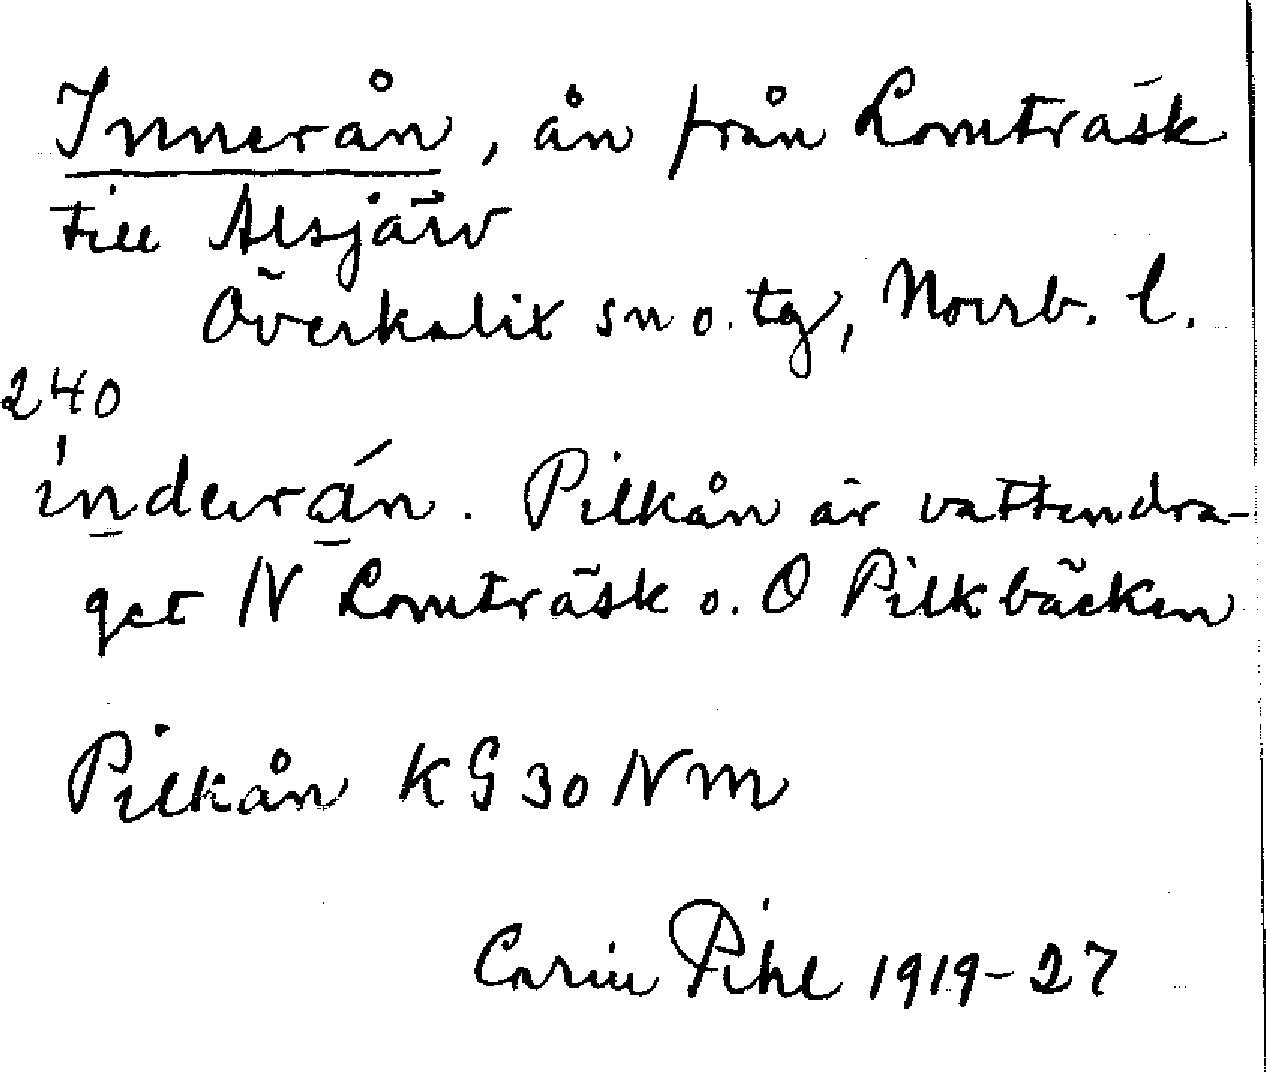 Innerån, ån från Lomträsk
till Alsjärv
Överkalix sn o. tg, Norrb. l.
240
i̍ndərán. Pilkån är vattendra-
get N Lomträsk o. O Pilkbäcken
Pilkån KG 30 NM
Carin Pihl 1919-27